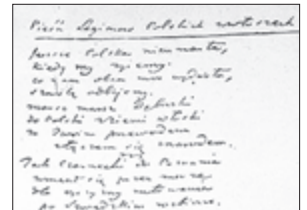 Pieśń Legionów Polskich we Włoszech
Jeszcze Polska nie umarła,
kiedy my żyjemy.
co nam obca moc wydarła,
szablą odbijemy.
marsz marsz Dąbrowski
do Polski z ziemi włoski
za Twoim przewodem
złączem się z narodem.
Jak Czarnecki do Poznania
wracał się przez morze
dla ojczyzny ratowania
po Szwedzkim